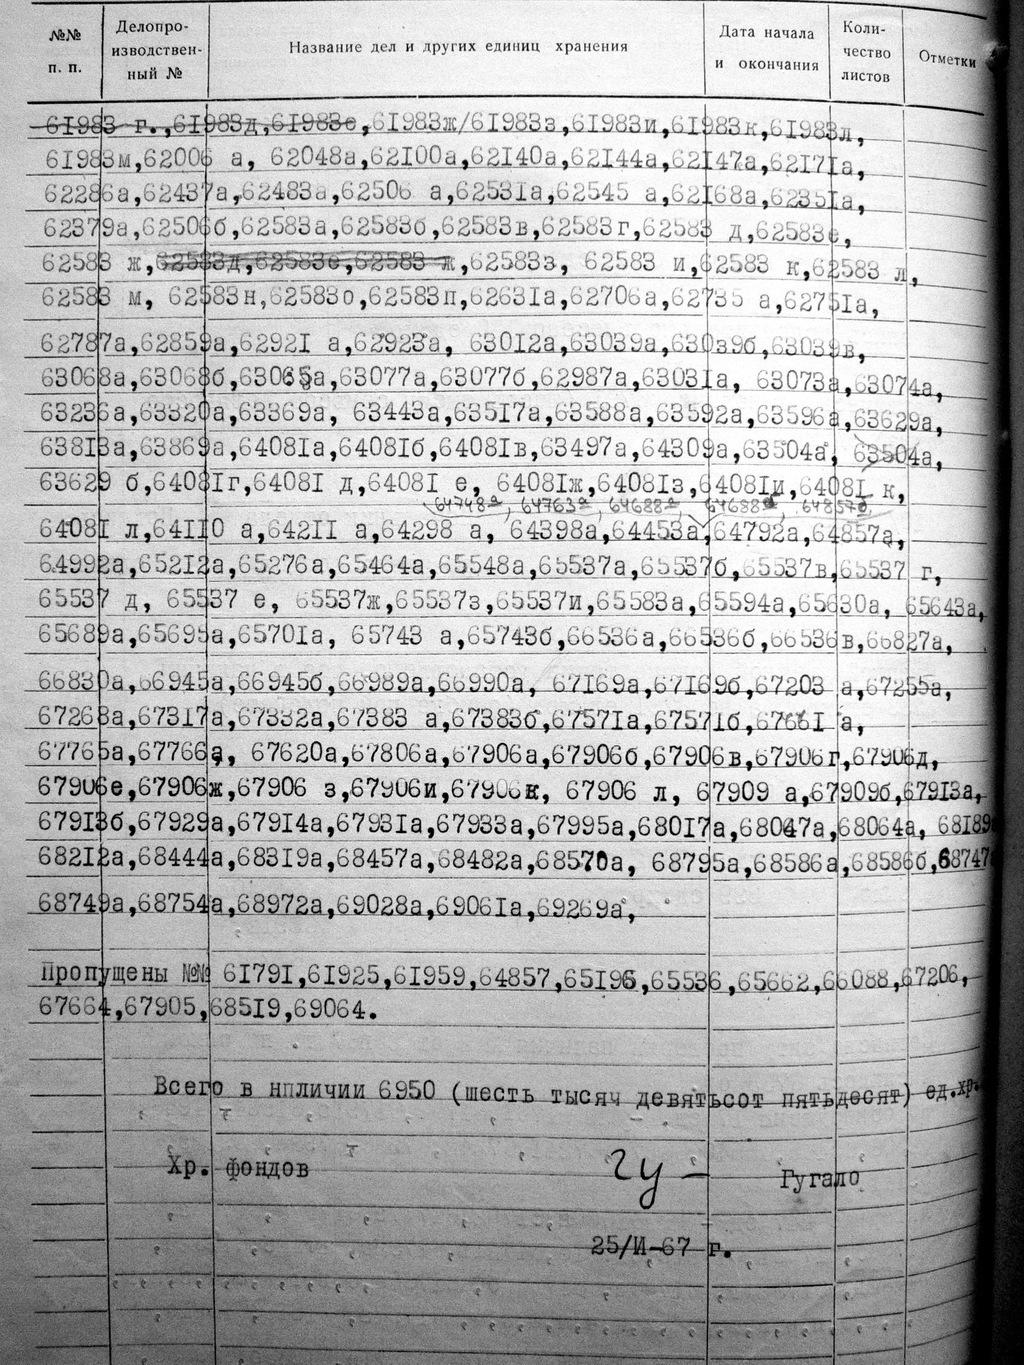 №№ п. п. Делопро-изводствен-ный № Название дел и других единиц хранения Дата начала и окончания Коли-чество листов Отметки
61983 г.,61983д,61983е,61983ж/61983з,61983и,61983к,61983л,
61983м,62006 а, 62048а,62100а,62140а,62144а,62147а,62171а,
62286а,62437а,62483а,62506 а,62531а,62545 а,62168а,62351а,
62379а,62506б,62583а,62583б,62583в,62583г,62583 д,62583е,
62583 ж,62583д,62583е,62583 ж,62583з, 62583 и,62583 к,62583 л,
62583 м, 62583н,62583о,62583п,62631а,62706а,62735 а,62751а,
62787а,62859а,62921 а,62923а, 63012а,63039а,63039б,63039в,
63068а,63068б,63065а,63077а,63077б,62987а,63031а, 63073а,63074а,
63236а,63320а,63369а, 63443а,63517а,63588а,63592а,63596а,63629а,
63813а,63869а,64081а,64081б,64081в,63497а,64309а,63504а, 63504а,
63629 б,64081г,64081 д,64081 е, 64081ж,64081з,64081и,64081 к,
64748а, 64763а, 64688а, 64688 64857б,
64081 л,64110 а,64211 а,64298 а, 64398а,64453а,64792а,64857а,
64992а,65212а,65276а,65464а,65548а,65537а,65537б,65537в,65537 г,
65537 д, 65537 е, 65537ж,65537з,65537и,65583а,65594а,65630а, 65643а,
65689а,65695а,65701а, 65743 а,65743б,66536а,66536б,66536в,66827а,
66830а,66945а,66945б,66989а,66990а, 67169а,67169б,67203 а,67255а,
67268а,67317а,67332а,67383 а,67383б,67571а,67571б,67661 а,
67765а,67766а, 67620а,67806а,67906а,67906б,67906в,67906г,67906д,
67906е,67906ж,67906 з,67906и,67906к, 67906 л, 67909 а,67909б,67913а,
67913б,67929а,67914а,67931а,67933а,67995а,68017а,68047а,68064а, 68189а
68212а,68444а,68319а,68457а,68482а,68570а, 68795а,68586а,68586б,68747а
68749а,68754а,68972а,69028а,69061а,69269а,
Пропущены №№ 61791,61925,61959,64857,65196,65536,65662,66088,67206,
67664,67905,68519,69064.
Всего в нпличии 6950 (шесть тысяч девятьсот пятьдесят) ед.хр.
Хр. фондов Гу- Гугало
25/И-67 г.